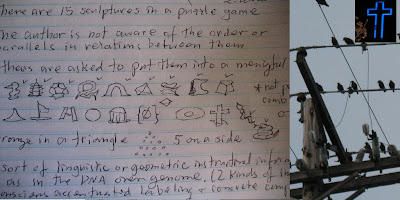 There are 15 sculptures in a puzzle game
The author is not aware of the order or
parallels in relations between them
Others are asked to put them into a meaningful
* not
comb
arrange in a triangle 5 on a side
sort of linguistic or geometric
as in the DNA genome. (2 kinds of
accentuated labeling + concrete